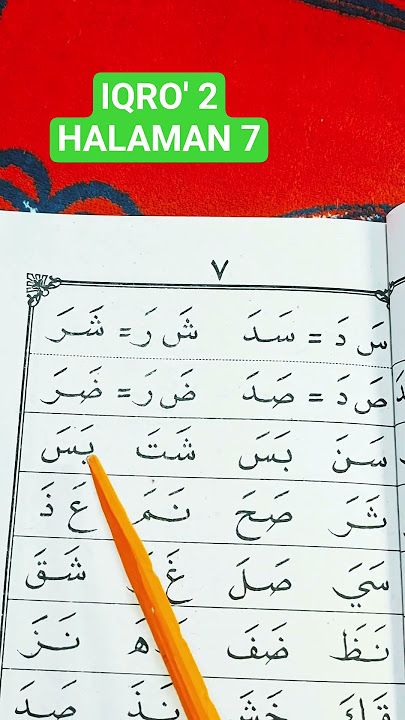 IQRO' 2
HALAMAN 7
٧
سَ دَ = سَدَ شَ رَ = شَرَ
صَ دَ = صَدَ ضَ رَ = ضَرَ
سَنَ بَسَ شَتَ بَسَ
ثَرَ صَحَ نَمَ عَ ذَ
سَيَ صَلَ شَقَ
نَظَ ضَفَ نَزَ
خَشَ نَذَ صَدَ